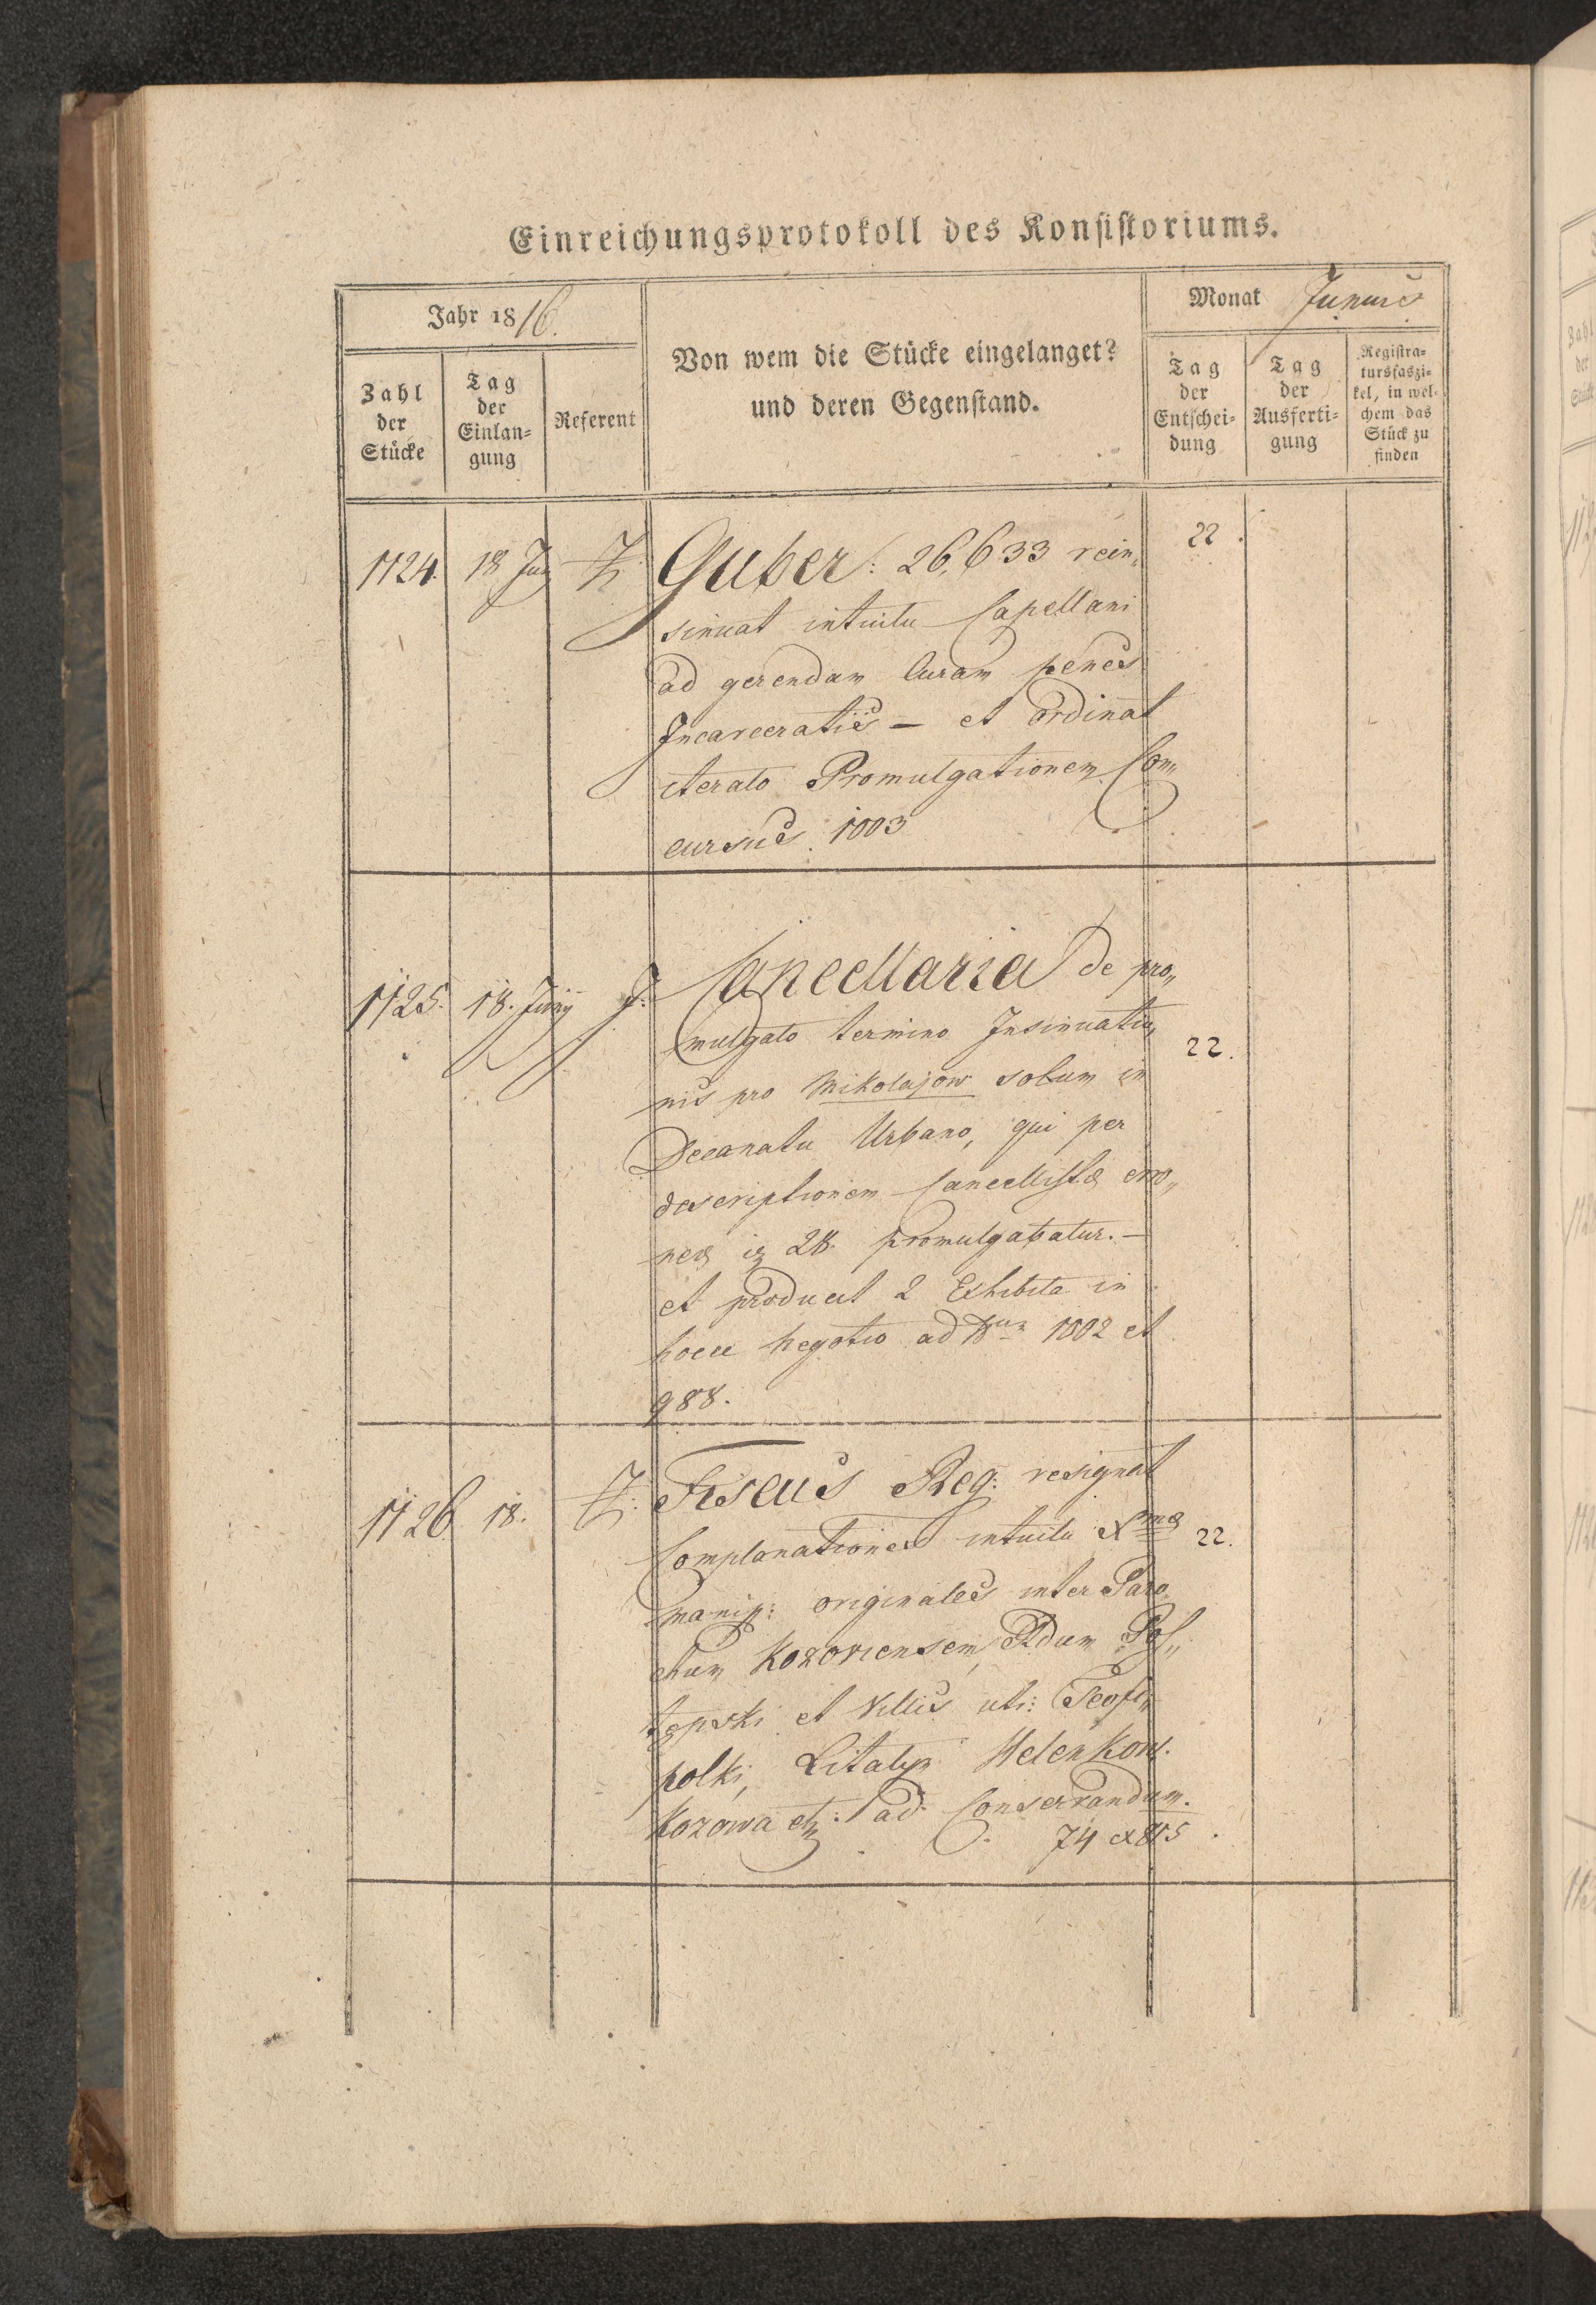 Einreichungsprotokoll des Konsistoriums.
Jahr 1816.
Monat Junius
Zahl der Stücke
Tag der Einlan=gung
Referent
Von wem die Stücke eingelanget?
und deren Gegenstand.
Tag der Entschei=dung
Tag der Ausferti=gung
Registra=tursfaszi=kel, in wel=chem das Stück zu finden
1124. 18 Jun Guber: 26,633 rein„ 22.
sinuat intuitu Capellani
ad gerendam Curam penes
Incarceratis – et ordinat
iterato Promulgationem Con„
cursus. 1003
1125. 18. Junij J. Cancellaria de pro„
mulgato termino Insinuatio„ 22.
nis pro Mikolajow solum in
Decanatu Urbano, qui per
descriptionem Cancellistæ erro„
nea 28. promulgabatur. –
et producit 2 Exhibita in
hocce Negotio ad 1002 et
988.
1126 18. Fiscus Reg: resignat
Complanationes intuitu 22.
manip: originales inter Paro„
chum Kozoviensem,
et Villis uti: Teofi„
polki, Litatyn Helenkow.
Kozowa etz: ad Conservandum.
74 ex 815.